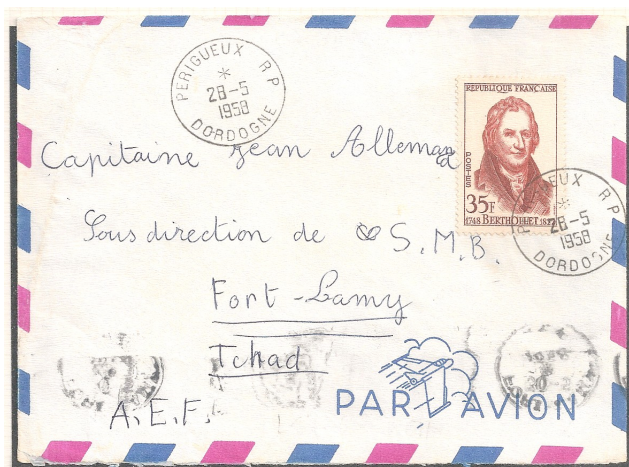 PERIGUEUX R P
*
28-5
1958
DORDOGNE
REPUBLIQUE FRANÇAISE
POSTES
35F
1748 BERTHOLLET 1822
PERIGUEUX R P
*
28-5
1958
DORDOGNE
Capitaine Jean Allemand
Sous direction de S.M.B.
Fort-Lamy
Tchad
A.E.F.
PAR AVION